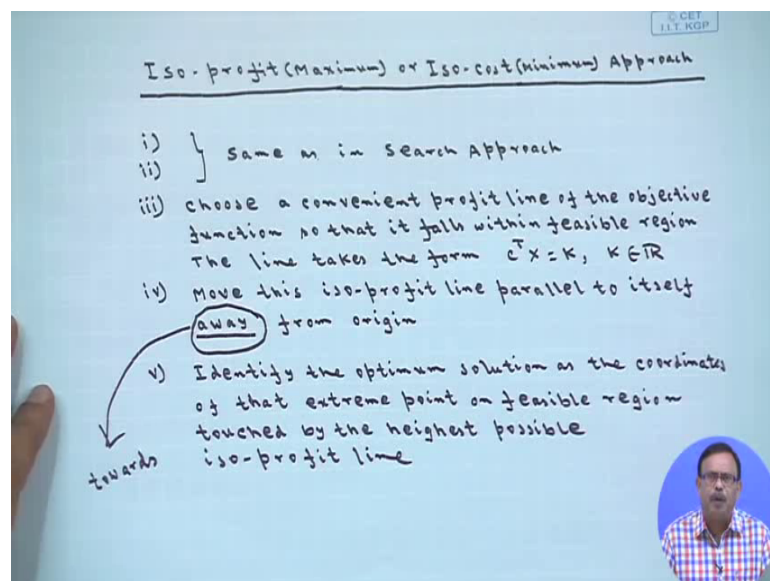 © CET
I.I.T. KGP
Iso-profit (Maximum) or Iso-cost (Minimum) Approach
i)
ii) } Same as in Search Approach
iii) choose a convenient profit line of the objective
function so that it falls within feasible region
The line takes the form cᵀx = K, K ∈ ℝ
iv) Move this iso-profit line parallel to itself
away from origin
v) Identify the optimum solution as the coordinates
of that extreme point on feasible region
touched by the heighest possible
iso-profit line
towards